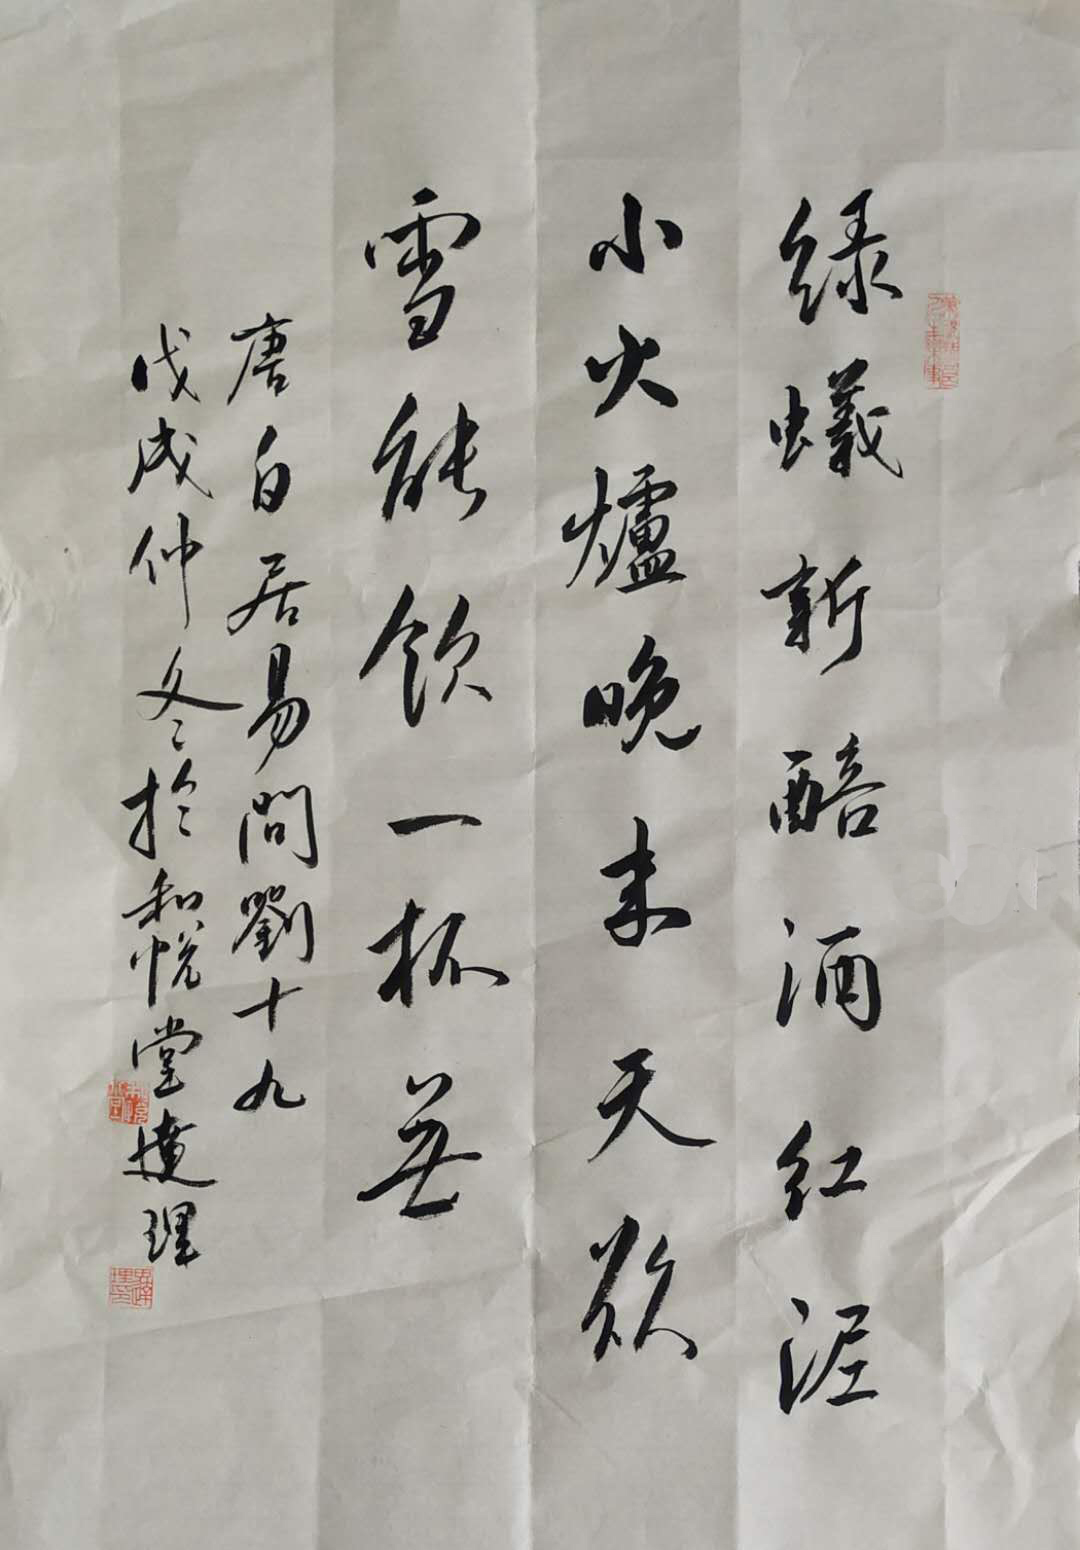 綠蟻新醅酒紅泥
小火爐晚来天欲
雪能飲一杯無
唐白居易問劉十九
戊戌仲冬於和悦堂達理